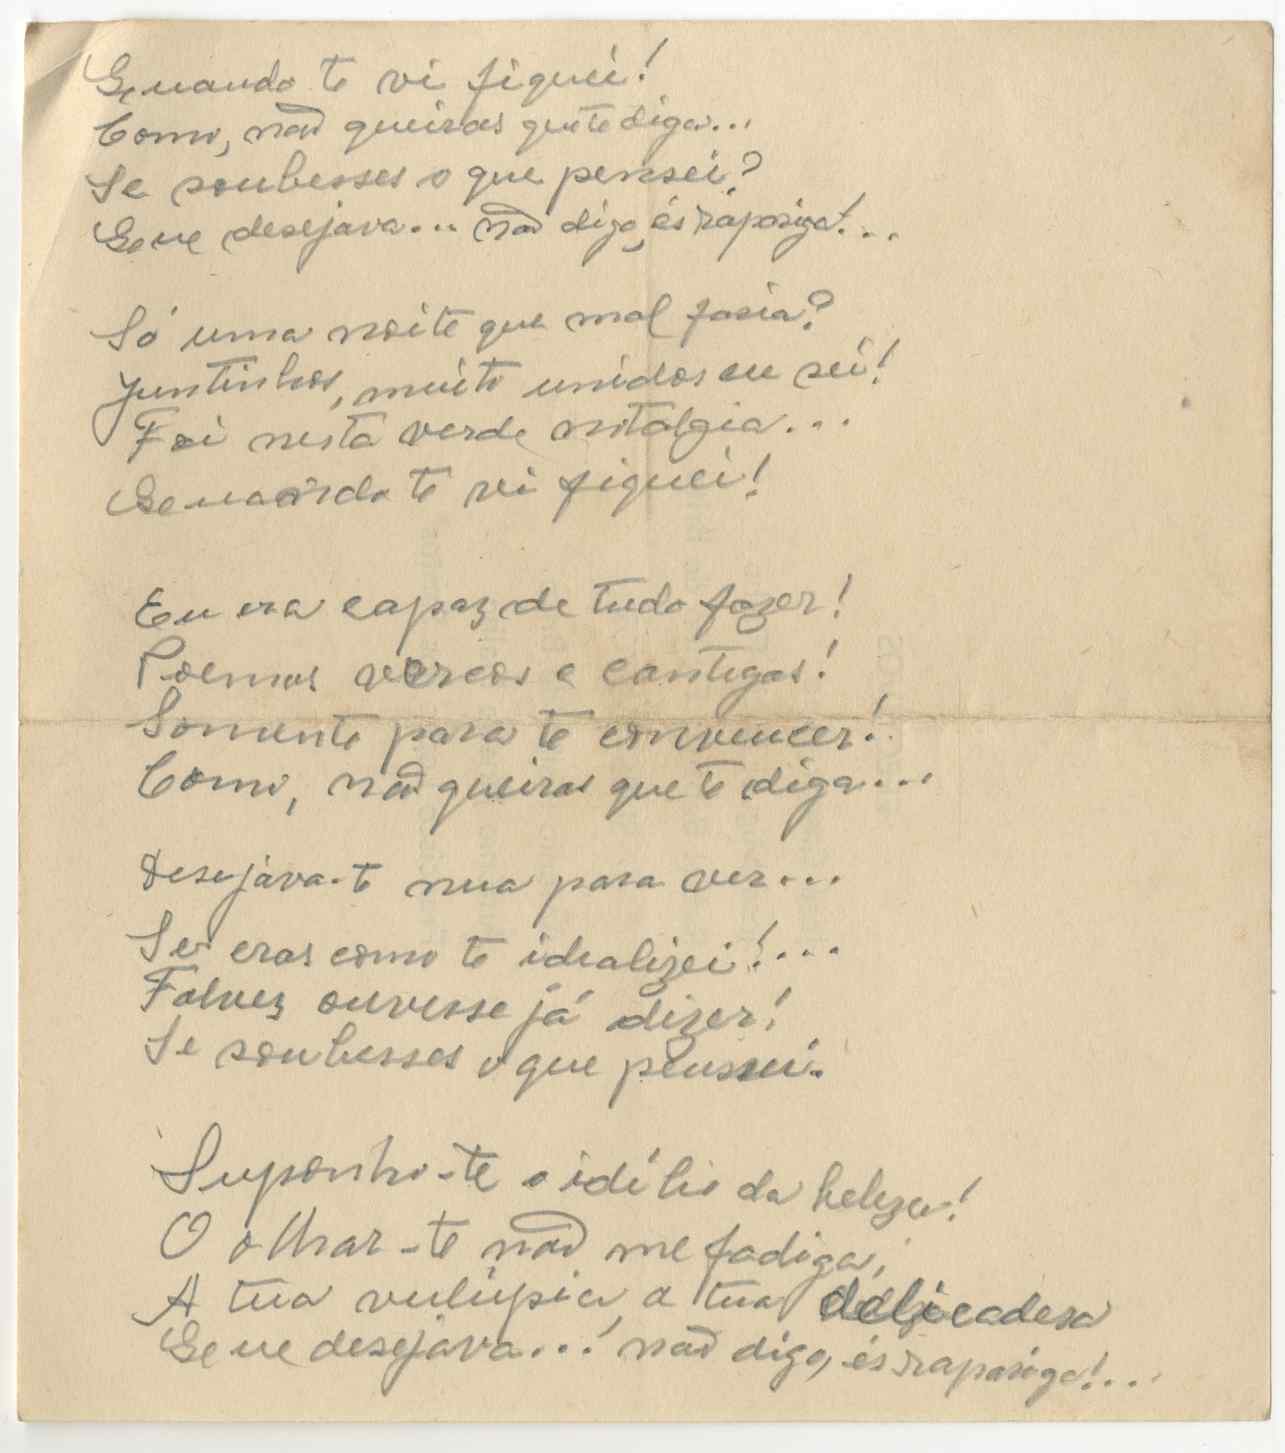 Quando te vi fiquei!
Como, não queiras que te diga...
Se soubesses o que pensei?
Que desejava... não digo, és rapariga!...
Só uma noite que mal fasia?
Juntinhos, muito unidos eu sei!
Foi nesta verde nostalgia...
Quando te vi fiquei!
Eu era capaz de tudo fazer!
Poemas vercos e cantigas!
Somente para te convencer!
Como, não queiras que te diga...
Desejava-te nua para ver...
Se eras como te idealizei!...
Talvez ouvesse já dizer!
Se soubesses o que pensei.
Suponho-te o idílio da beleza!
O olhar-te não me fadiga;
A tua vulúpia, a tua delicadesa
Que desejava...! não digo, és rapariga!...